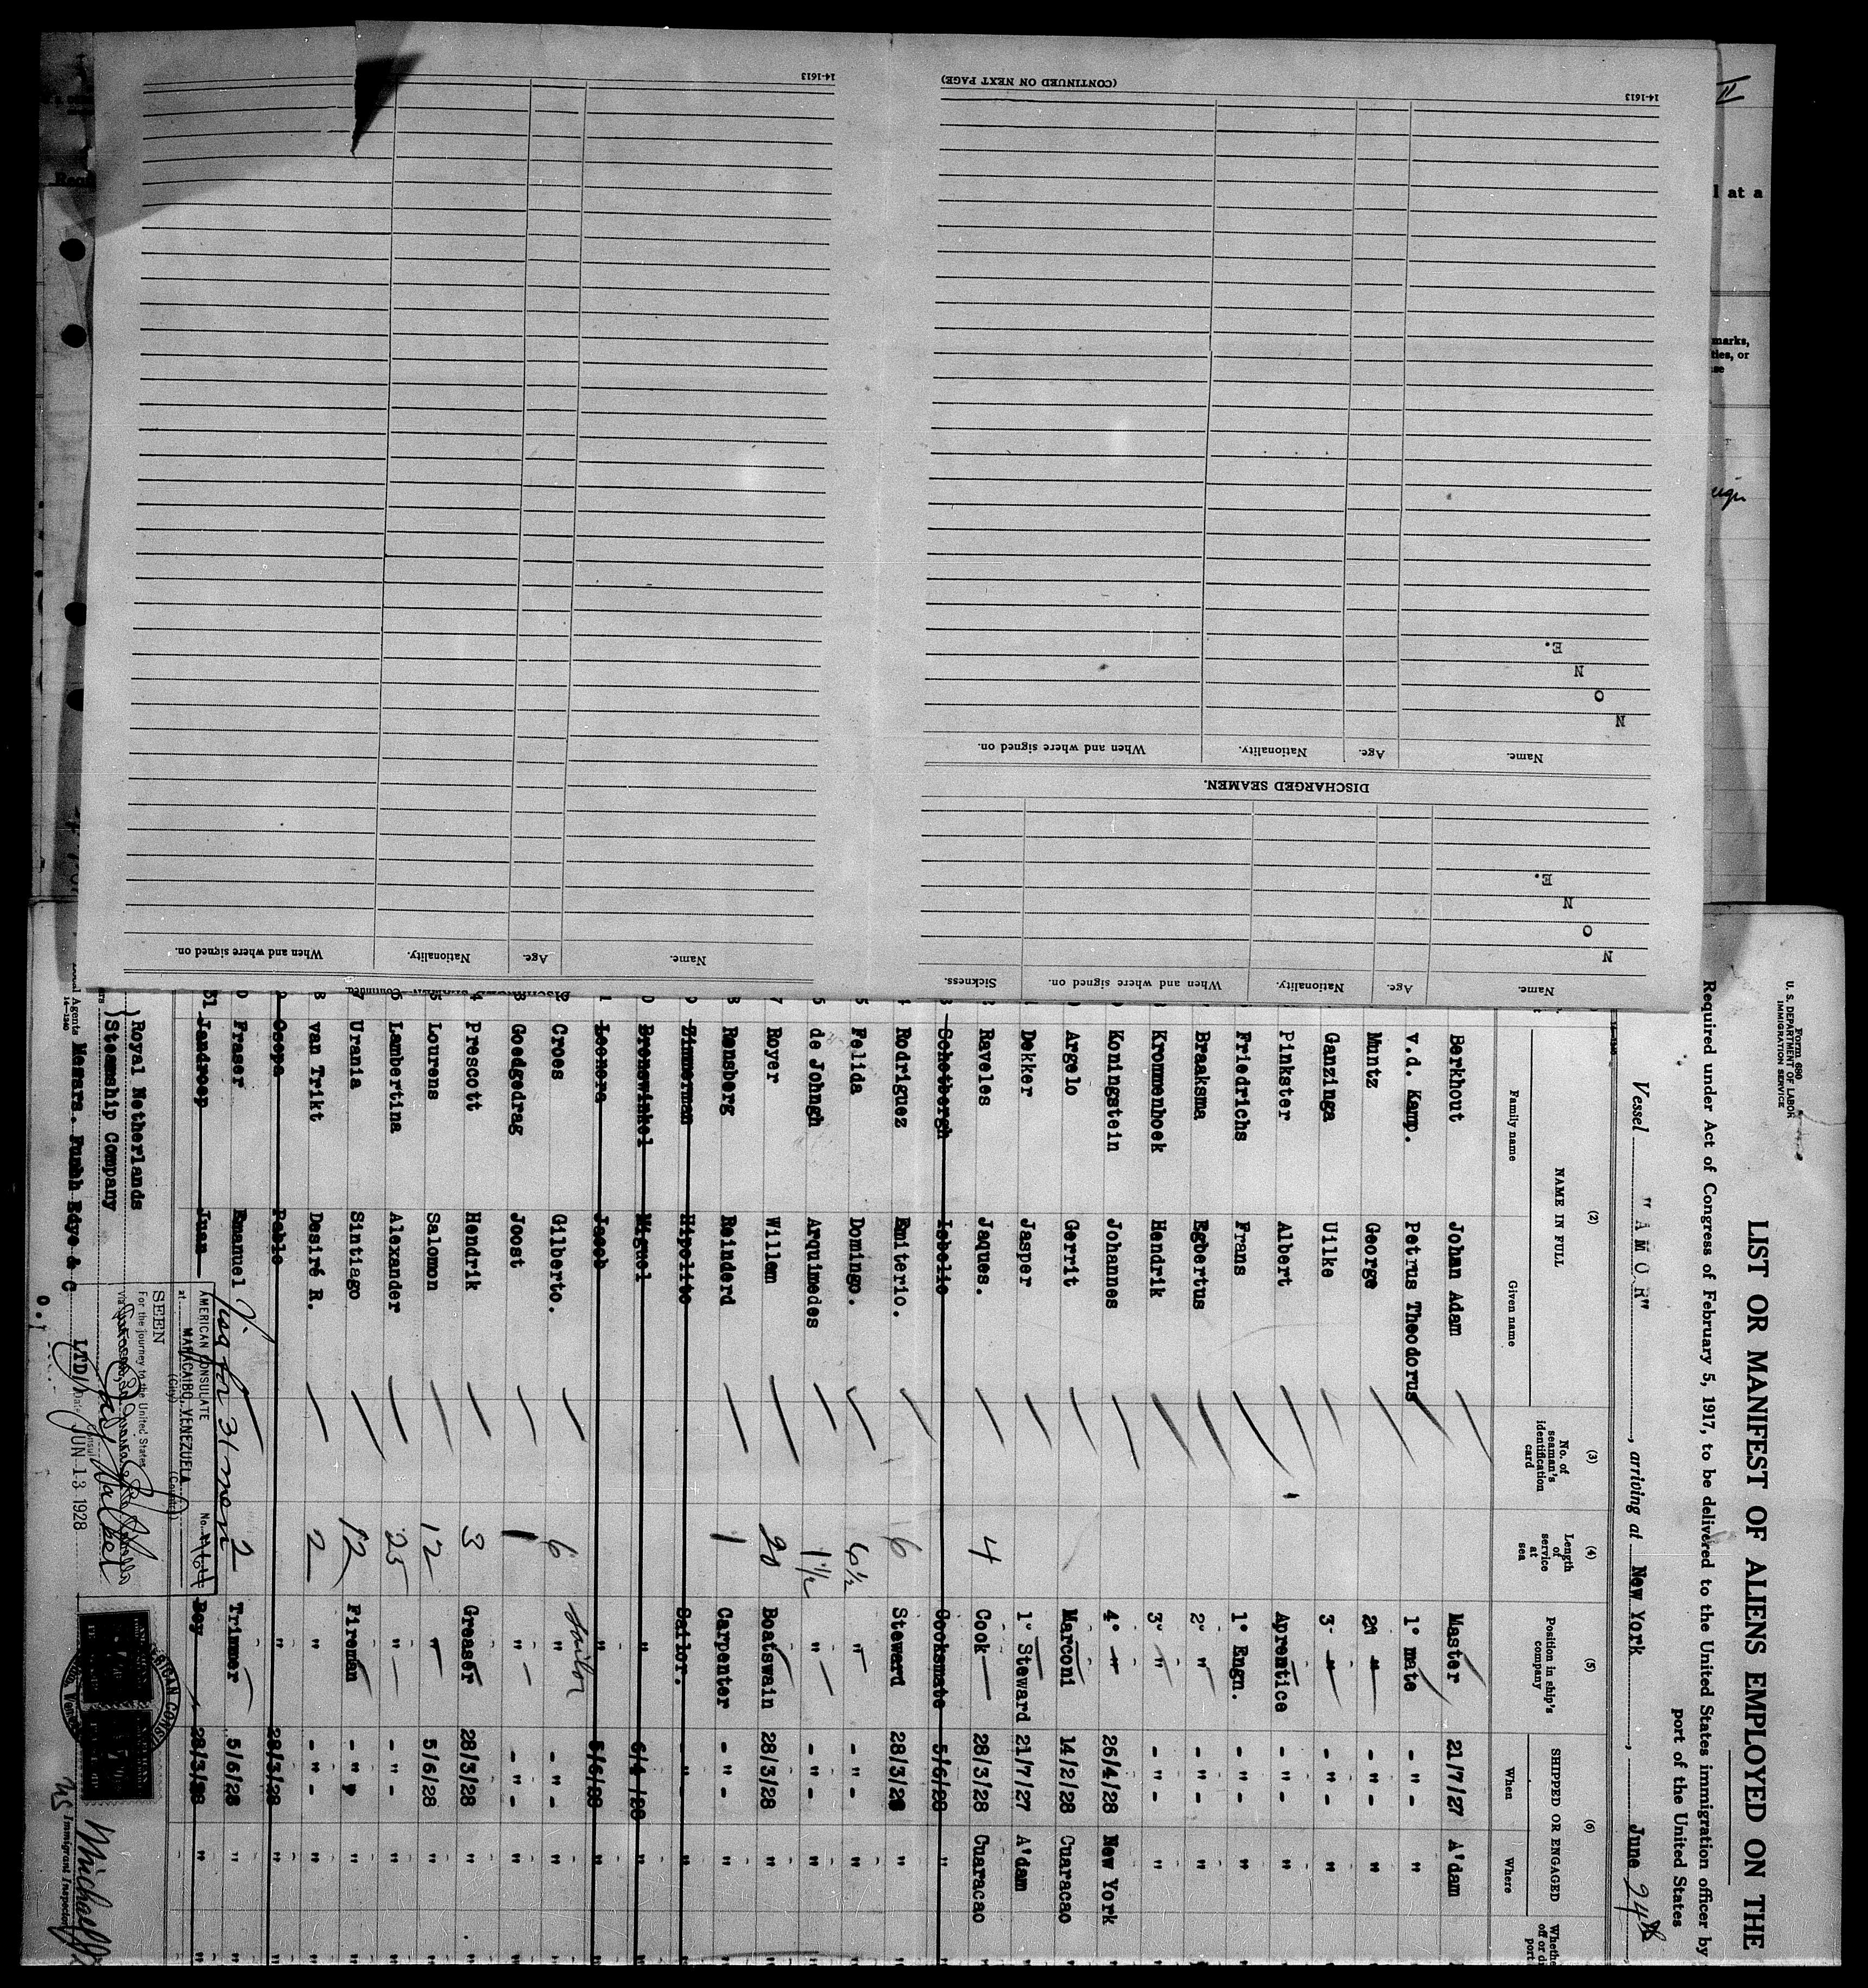 14-1613
(CONTINUED ON NEXT PAGE)
14-1613
N
O
N
E.
Name.
Age.
Nationality.
When and where signed on.
DISCHARGED SEAMEN.
N
O
N
E.
Name.
Age.
Nationality.
When and where signed on.
Sickness.
Name.
Age.
Nationality.
When and where signed on.
II
l at a
marks,
ties, or
Form 680
U. S. DEPARTMENT OF LABOR
IMMIGRATION SERVICE
LIST OR MANIFEST OF ALIENS EMPLOYED ON THE
Required under Act of Congress of February 5, 1917, to be delivered to the United States immigration officer by
port of the United States
Vessel "AMOR", arriving at New York, June 24th
(2) (3) (4) (5) (6)
NAME IN FULL
Family name Given name
No. of seaman's identification card
Length of service at sea
Position in ship's company
SHIPPED OR ENGAGED
When Where
Berkhout Johan Adam Master 21/7/27 A'dam
v.d. Kamp. Petrus Theodorus 1° mate - " - "
Muntz George 2° " - " - "
Ganzinga Uilke 3° " - " - "
Pinkster Albert Aprentice - " - "
Friedrichs Frans 1° Engn. - " - "
Braaksma Egbertus 2° " - " - "
Krommenhoek Hendrik 3° " - " - "
Koningstein Johannes 4° " 26/4/28 New York
Argelo Gerrit Marconi 14/2/28 Cuaracao
Dekker Jasper 1° Steward 21/7/27 A'dam
Raveles Jaques. 4 Cook 28/3/28 Cuaracao
Schotbergh Isbelio Cooksmate 5/6/28 "
Rodriguez Emiterio. 6 Steward 28/3/28 "
Felida Domingo. 6½ " - " - "
de Johngh Arquimedes 1½ " - " - "
Royer Willem 20 Boatswain 28/3/28 "
Rensberg Reinderd 1 Carpenter - " - "
Zimmerman Hipolito Sailor. - " - "
Brenewinkel Miguel " 6/4/28 "
Leonora Jacob " 5/6/28 "
Croes Gilberto. 6 Sailor " - " - "
Goedgedrag Joost 1 " - " - "
Prescott Hendrik 3 Greaser 28/3/28 "
Lourens Salomon 12 " 5/6/28 "
Lambertina Alexander 25 " - " - "
Urania Sintiago 12 Fireman - " - "
van Trikt Desiré R. 2 " - " - "
Osepa Pablo " 28/3/28 "
Fraser Emanuel 2 Trimmer 5/6/28 "
31 Jandroep Juan Boy 28/3/28 "
Visa for 31 men
Royal Netherlands
Steamship Company
Agents Messrs. Funhh Edye & C
LTD
AMERICAN CONSULATE
at MARACAIBO, VENEZUELA
(City) (Country)
No.
SEEN
For the journey to the United States
Via
Consul
Date JUN 13 1928
Immigrant Inspector
14-1240